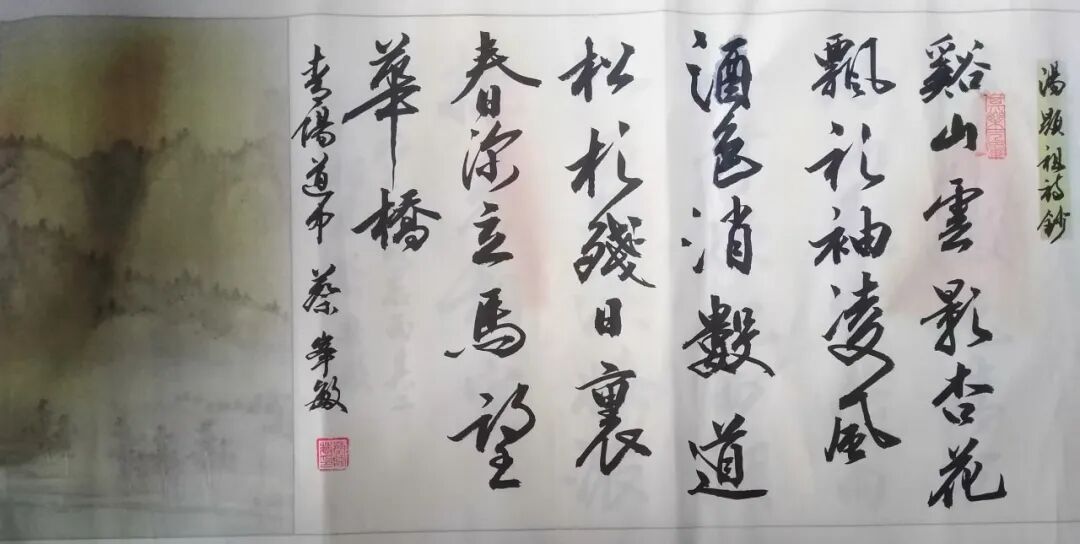 湯顯祖詩鈔
谿山雲影杏花
飄衫袖凌風
酒色消數道
松杉殘日裏
春深立馬望
華橋
青陽道中 蔡峯敏